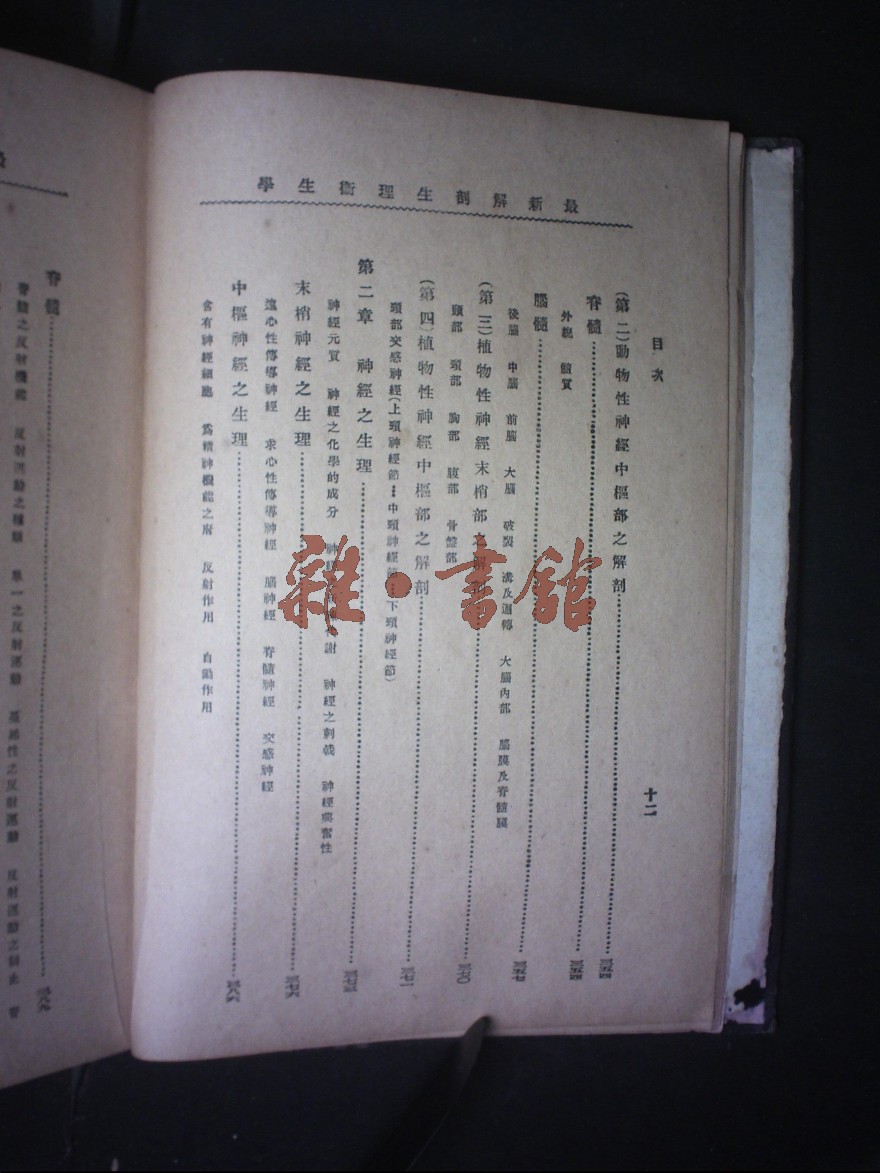 最新解剖生理衛生學
目次
十二
(第二)動物性神經中樞部之解剖……三五四
脊髓……三五四
外貌 髓質
腦髓……三五七
後腦 中腦 前腦 大腦 破裂 溝及迴轉 大腦內部 腦膜及脊髓膜
(第三)植物性神經末梢部之解剖……三七〇
頭部 頸部 胸部 腹部 骨盤部
(第四)植物性神經中樞部之解剖……三七一
頸部交感神經(上頸神經節…中頸神經節…下頸神經節)
第二章 神經之生理……三七三
神經元質 神經之化學的成分 神經之 謝 神經之刺戟 神經興奮性
末梢神經之生理……三七六
遠心性傳導神經 求心性傳導神經 腦神經 脊髓神經 交感神經
中樞神經之生理……三八六
含有神經細胞 為精神機能之府 反射作用 自動作用
脊髓……三八九
脊髓之反射機能 反射運動之種類 單一之反射運動 反射運動之制止
雜·書館